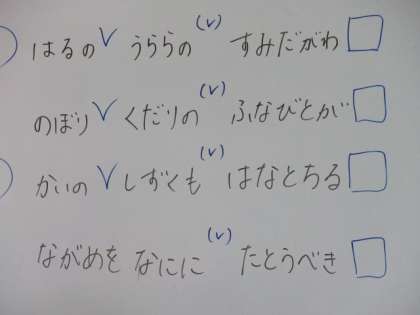 はるの V うららの (V) すみだがわ
のぼり V くだりの (V) ふなびとが
かいの V しずくも (V) はなとちる
ながめを なにに (V) たとうべき